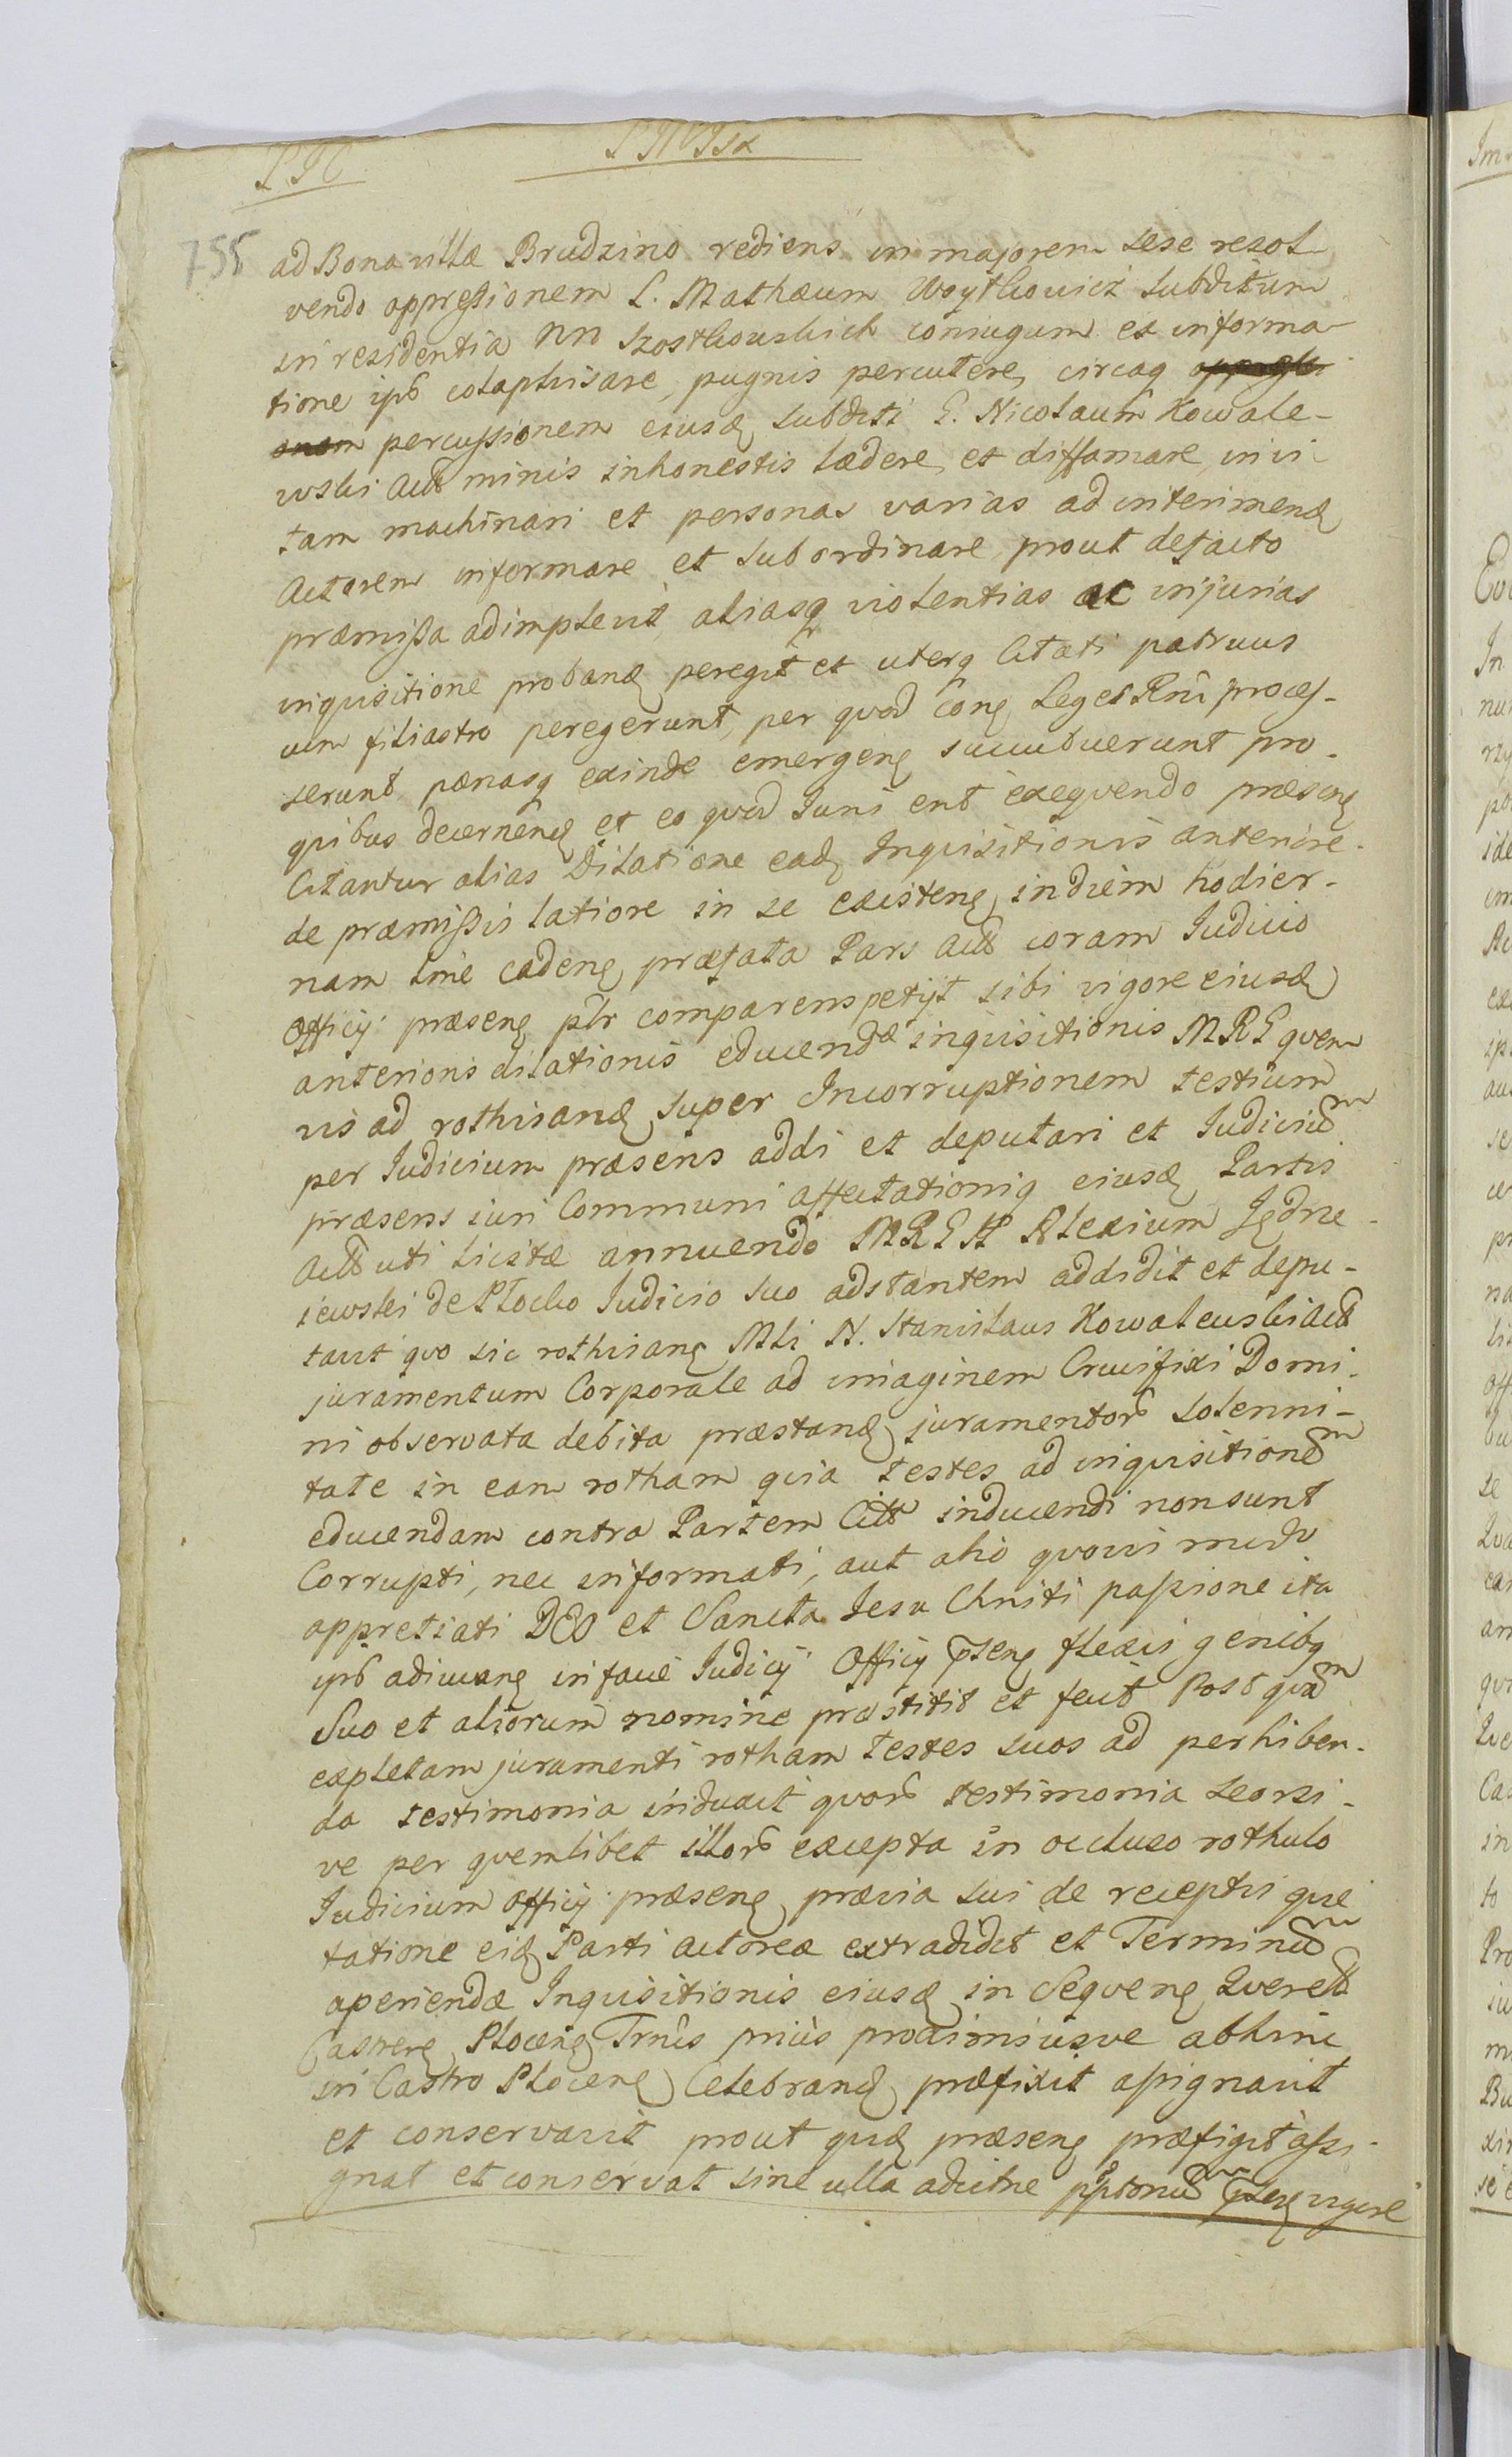 755
ad Bona villæ Brudzino rediens in majorem sese resol-
vendo oppressionem L. Mathæum Woytkowicz subditum
in residentia NN Szostkowskich coniugum ex informa-
tione ips colaphisare, pugnis percutere, circaq
percussionem eiusd subditi G. Nicolaum Kowale-
wski Act minis inhonestis lædere, et diffamare, in vi-
tam machinari et personas varias ad interimend
Actorem informare et subordinare, prout defacto
præmissa adimplevit, aliasq violentias ac injurias
inquisitione proband peregit et uterq Citati patruus
cum filiastro peregerunt, per quod Conq Leges Rni proces-
serunt pænasq exinde emergeng succubuerunt pro
quibus decernend et eo quod Iuris erit exequendo præseng
Citantur alias Dilatione ead Inquisitionis anteriore
de præmissis latiore in se existeng, in diem hodier-
nam tme cadeng præfata Pars Act coram Iudicio
Officij præseng pltr comparens petijt sibi vigore eiusd
anterioris dilationis educendæ inquisitionis MRG quem
vis ad rothisand super Incorruptionem testium
per Iudicium præsens addi et deputari et Iudicium
præsens iuri Communi affectationiq eiusd Partis
Act uti licitæ annuendo MRG N Alexium Jędrze-
iewski de Plocko Iudicio suo adstantem addidit et depu-
tavit quo sic rothisang Mli N. Stanislaus Kowalewski Act
juramentum Corporale ad imaginem Crucifixi Domi-
ni observata debita præstand juramentor solenni-
tate in eam rotham quia testes ad inquisitionem
educendam contra Partem Citt inducendi non sunt
Corrupti, nec informati, aut alio quovis modo
appretiati DEO et Sancta Jesu Chriti passione ita
ips adiuvang in facie Iudicij Officij pseng flexis genibq
Suo et aliorum nomine præstitit et fecit Post quam
expletam juramenti rotham testes suos ad perhiben-
da testimonia induxit quor testimonia seorsi-
ve per quemlibet illor excepta in occluso rothulo
Iudicium Officij præseng prævia sui de receptis quie
tatione eid Parti actoreæ extradidit et Terminum
aperiendæ Inquisitionis eiusd in Sequeng Querel
Castreng Ploceng Trnis prius proximiusve abhinc
in Castro Ploceng Celebrand præfixit assignavit
et conservavit prout quid præseng præfigit assi-
gnat et conservat sine ulla adcitne vigore